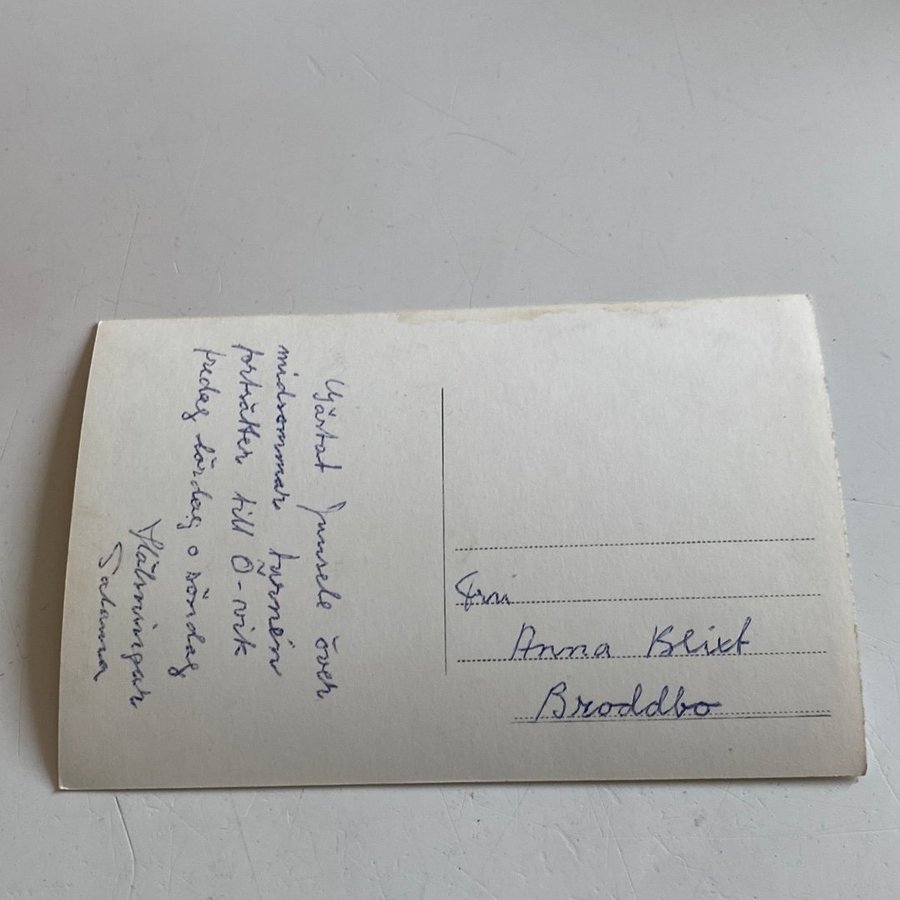 Gästat Junsele över
midsommar turnén
fortsätter till Ö-vik
fredag lördag o söndag
Hälsningar
Fru
Anna Blixt
Broddbo